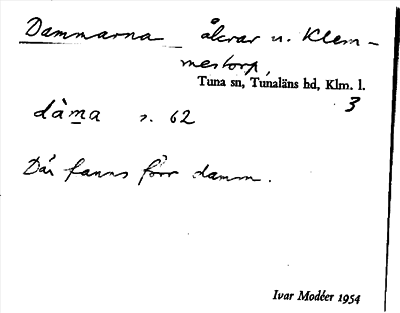 Dammarna åkrar u. Klem-
mestorp,
Tuna sn, Tunaläns hd, Klm. l.
3
dàma s. 62
Där fanns förr damm.
Ivar Modéer 1954